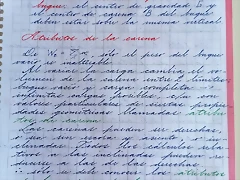 buque, el centro de gravedad
el centro de carena B del buque
deben estar sobre la misma vertical
Atributos de la carena
De solo el peso del buque
vacío es inalterable
Al variar la carga cambia el vo-
lumen de carena entre 2 límites:
buque vacío y carga completa
infinitas cargas posibles,
valores particulares de ciertas propie-
dades geométricas llamadas atribu-
tos de carena
Las carenas pueden ser derechas,
o
inclinadas. Todos los cálculos rela-
tivos a las inclinadas pueden re-
a las derechas
∴ solo se del conocer los atributos